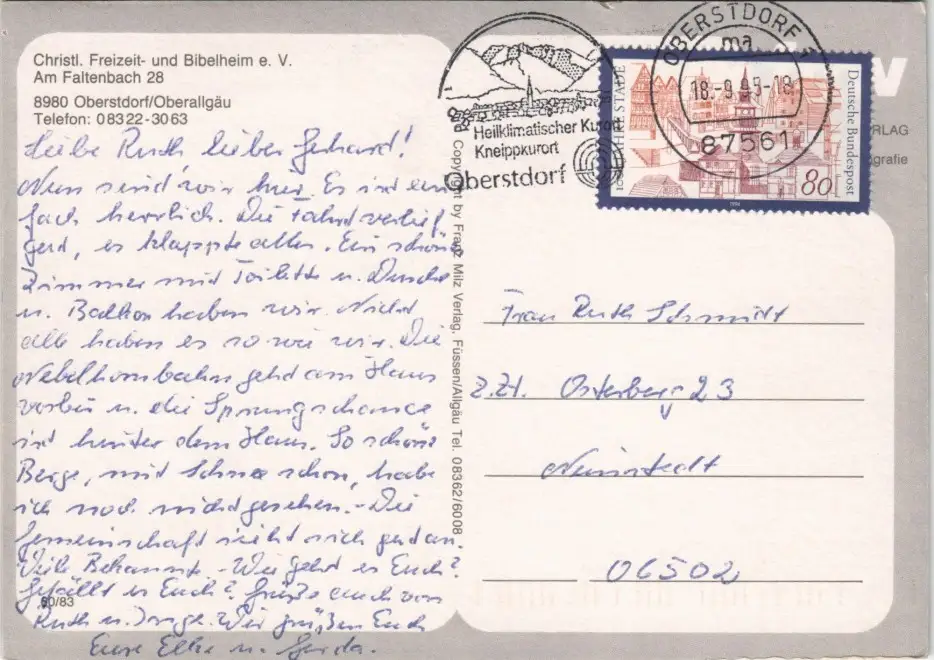 Christl. Freizeit- und Bibelheim e. V.
Am Faltenbach 28
8980 Oberstdorf/Oberallgäu
Telefon: 08322-3063
Liebe Ruth lieber Gerhard!
Nun sind wir hier. Es ist ein
fach herrlich. Die Fahrt verlief
gut, es klappte alles. Ein schönes
Zimmer mit Toilette u. Dusche
u. Balkon haben wir. Nicht
alle haben es so wie wir. Die
Nebelhornbahn geht am Haus
vorbei u. die Sprungschance
ist hinter dem Haus. So schöne
Berge, mit Schnee schon, habe
ich noch nicht gesehen. - Die
Gemeinschaft sich gut an.
Viele Bekannte - Wie geht es Euch?
Gefällt es Euch? Grüße auch von
Ruth u. Wir grüßen Euch
Eure Elke u. Gerda.
50/83
Copyright by Franz Milz Verlag, Füssen/Allgäu Tel. 08362/6008
Heilklimatischer Kurort
Kneippkurort
Oberstdorf
OBERSTDORF 1
ma
18.-9.95-18
87561
Deutsche Bundespost
80
1994
RLAG
grafie
Frau Ruth Schmidt
z.Zt. Osterberg 23
Neinstedt
06502